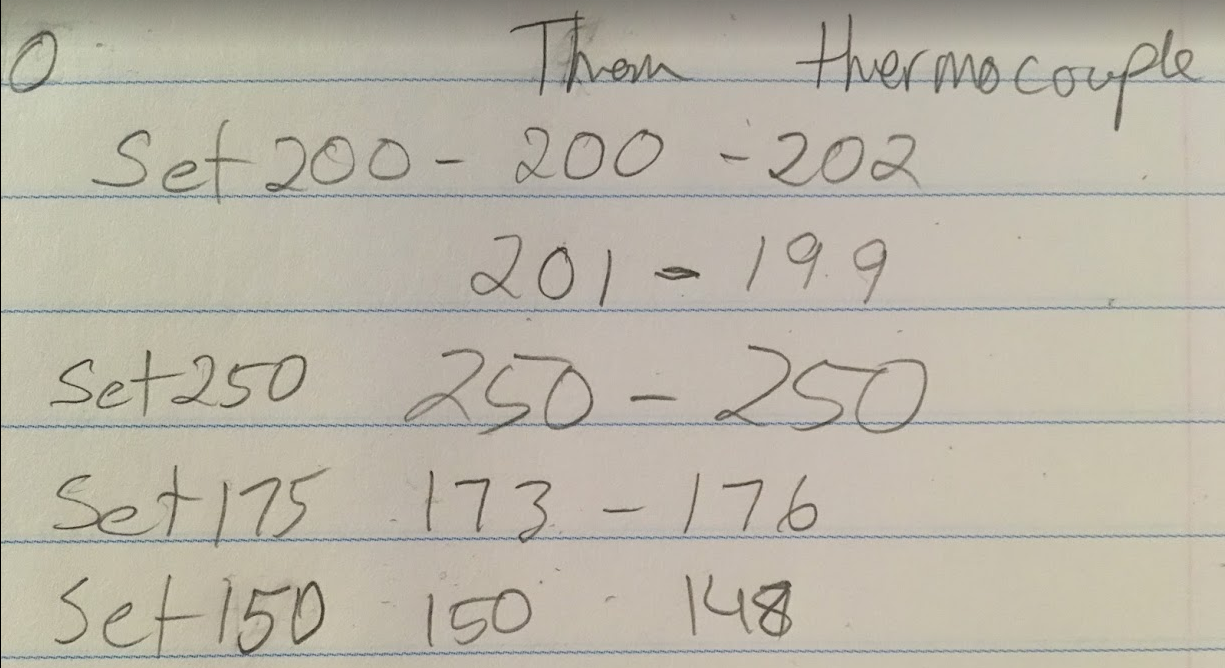 O Them thermocouple
Set 200 - 200 - 202
201 - 199
Set 250 250 - 250
Set 175 173 - 176
Set 150 150 148